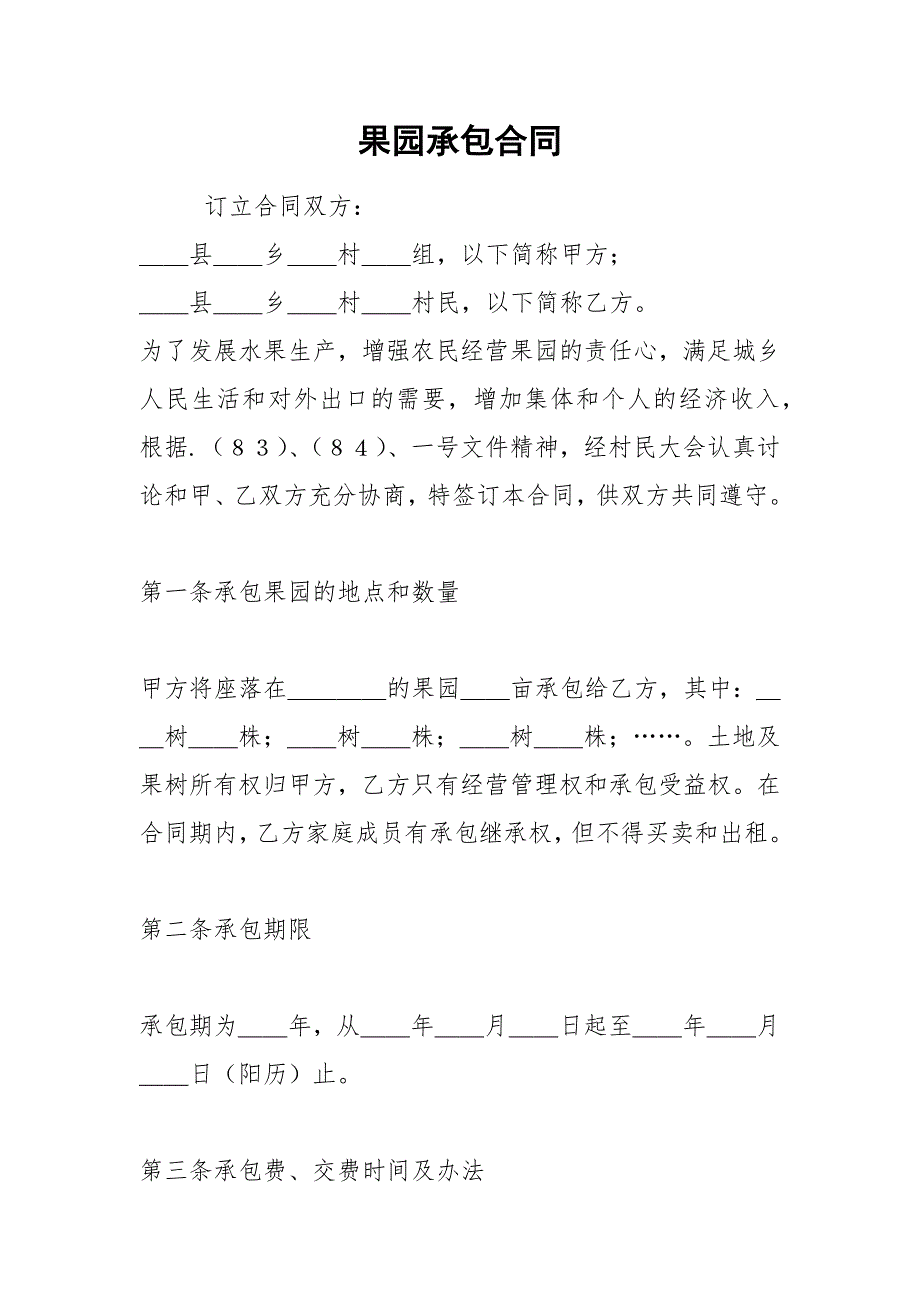 果园承包合同
订立合同双方：
____县____乡____村____组，以下简称甲方；
____县____乡____村____村民，以下简称乙方。
为了发展水果生产，增强农民经营果园的责任心，满足城乡
人民生活和对外出口的需要，增加集体和个人的经济收入，
根据.（８３）、（８４）、一号文件精神，经村民大会认真讨
论和甲、乙双方充分协商，特签订本合同，供双方共同遵守。
第一条承包果园的地点和数量
甲方将座落在________的果园____亩承包给乙方，其中：__
__树____株；____树____株；____树____株；……。土地及
果树所有权归甲方，乙方只有经营管理权和承包受益权。在
合同期内，乙方家庭成员有承包继承权，但不得买卖和出租。
第二条承包期限
承包期为____年，从____年____月____日起至____年____月
____日（阳历）止。
第三条承包费、交费时间及办法